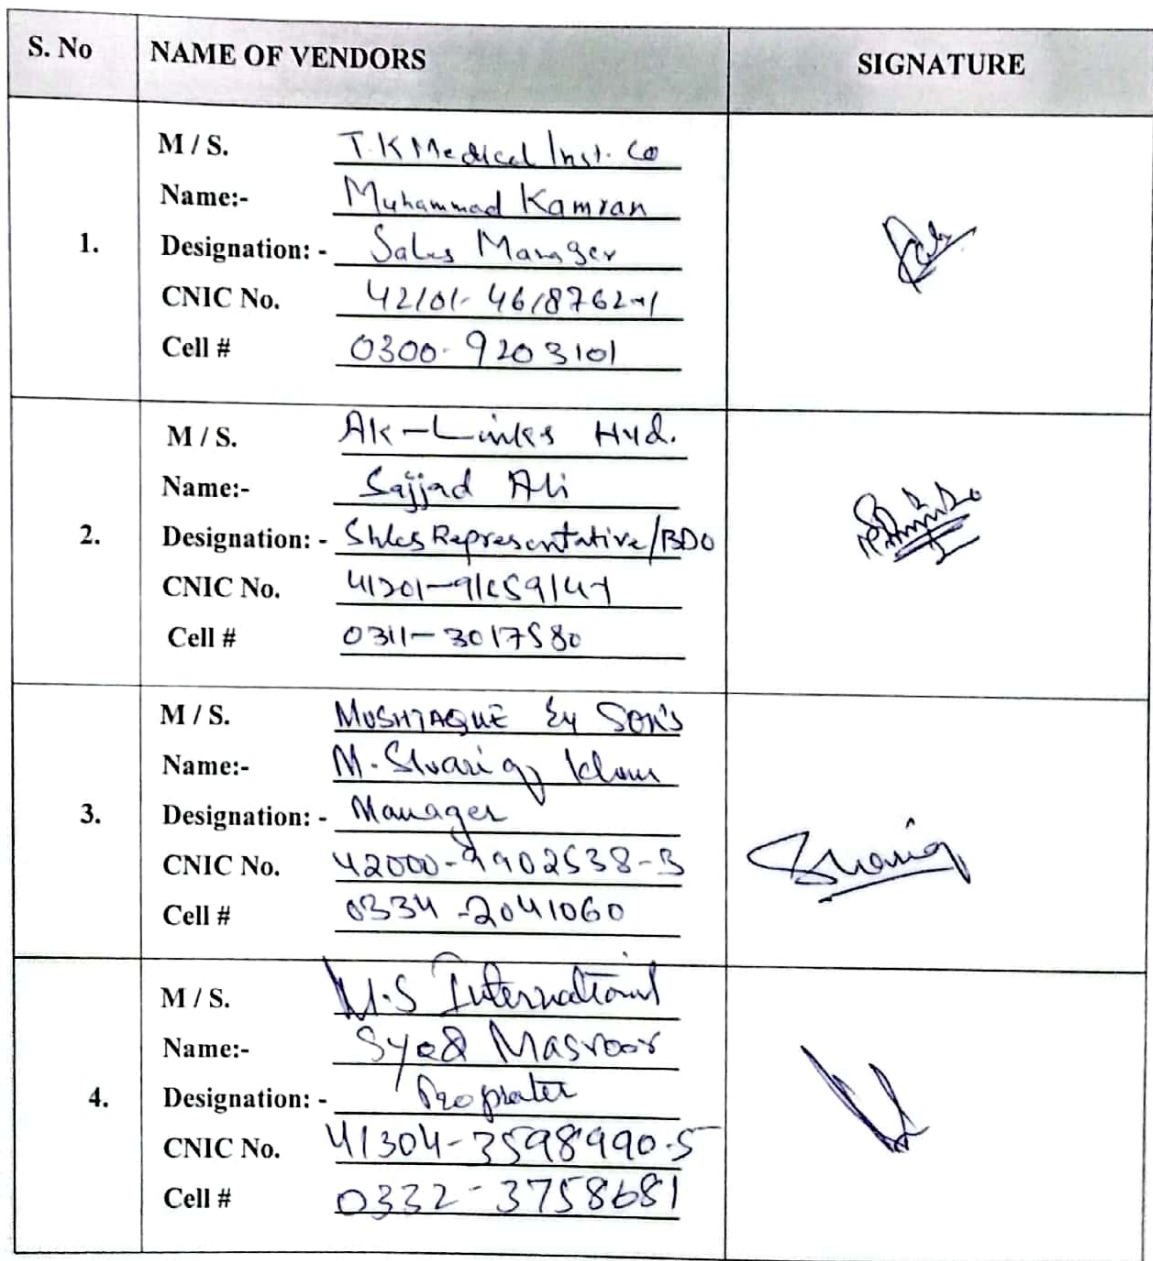 S. No NAME OF VENDORS SIGNATURE
1.
M / S. T.K Medical Inst. Co
Name:- Muhammad Kamran
Designation: - Sales Manager
CNIC No. 42101-4618762-1
Cell # 0300-9203101
2.
M / S. AK-Links Hyd.
Name:- Sajjad Ali
Designation: - Sales Representative/BDO
CNIC No.
Cell # 0311-3017580
3.
M / S. MUSHTAQUE & SON'S
Name:- M. Shariq Khan
Designation: - Manager
CNIC No. 42000-9902538-3
Cell # 0334-2041060
Shariq
4.
M / S. M.S International
Name:- Syed Masroor
Designation: - Proprater
CNIC No. 41304-3598990-5
Cell # 0332-3758681